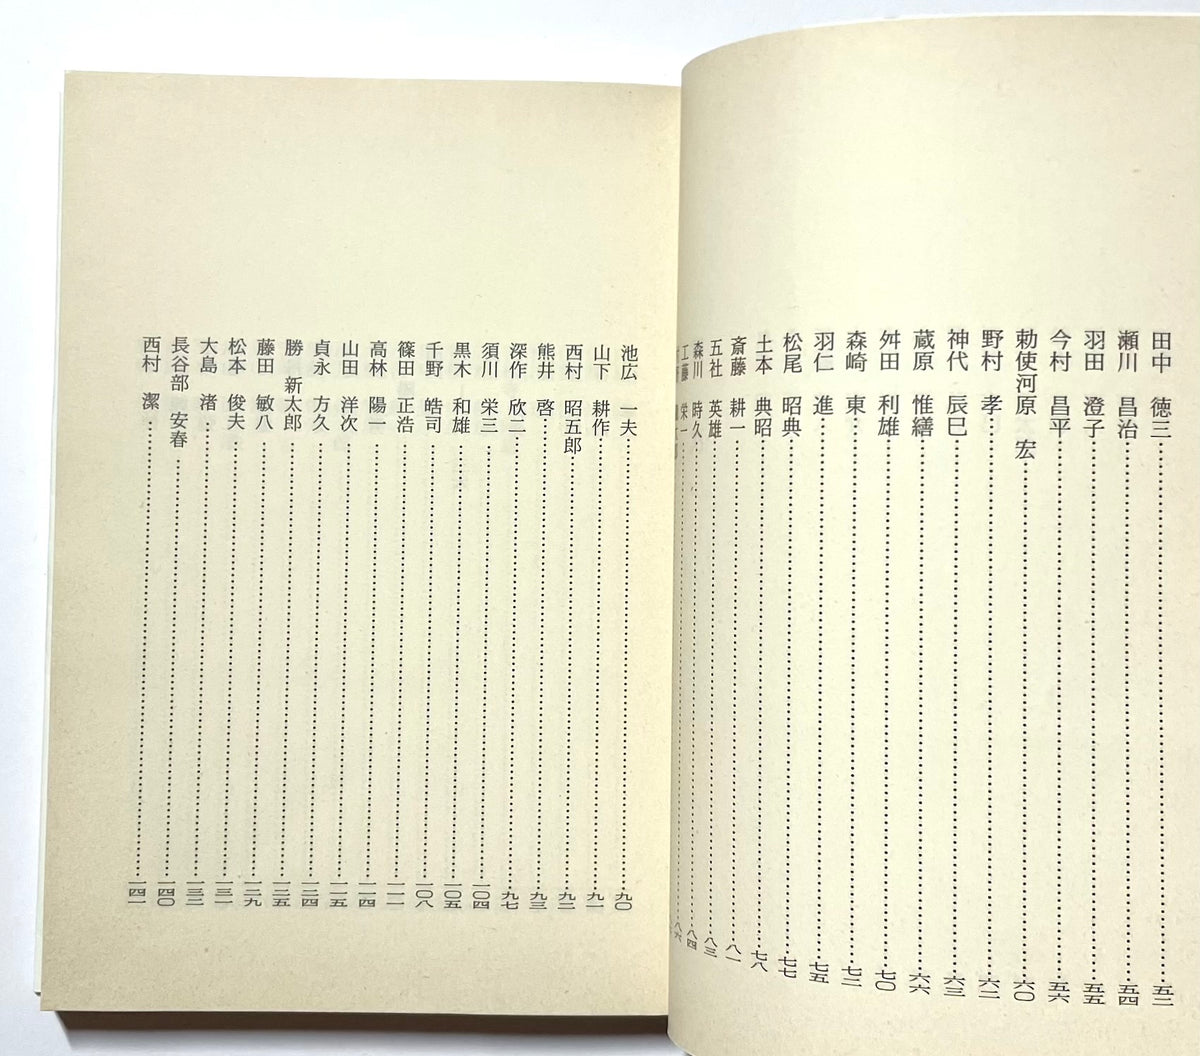 田中 徳三 五二
瀬川 昌治 五四
羽田 澄子 五五
今村 昌平 五六
勅使河原 宏 六〇
野村 孝 六二
神代 辰巳 六三
蔵原 惟繕 六六
舛田 利雄 七〇
森崎 東 七二
羽仁 進 七五
松尾 昭典 七七
土本 典昭 七八
斎藤 耕一 八一
五社 英雄 八三
森川 時久 八四
工藤 栄一 八六
池広 一夫 九〇
山下 耕作 九一
西村 昭五郎 九二
熊井 啓 九三
深作 欣二 九七
須川 栄三 一〇四
黒木 和雄 一〇五
千野 皓司 一〇八
篠田 正浩 一一一
高林 陽一 一一四
山田 洋次 一一五
貞永 方久 一二四
勝 新太郎 一二五
藤田 敏八 一二九
松本 俊夫 一三一
大島 渚 一三二
長谷部 安春 一四〇
西村 潔 一四一